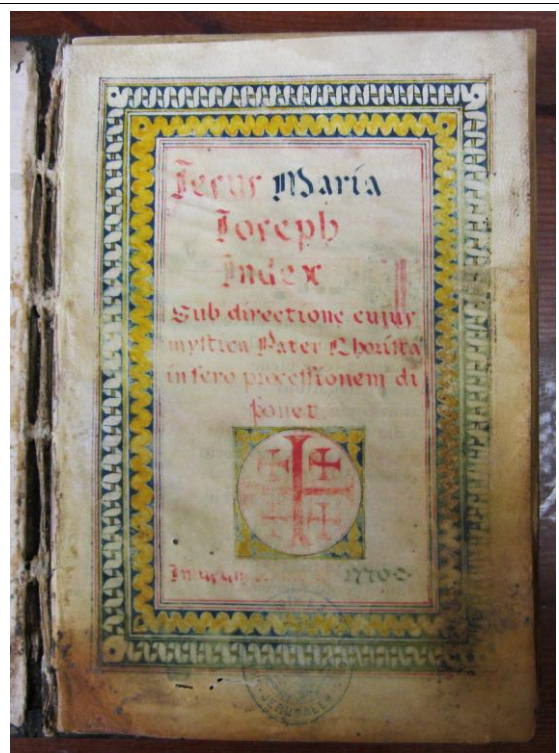 Jesus Maria
Joseph
Index
Sub directione cujus
mystica Pater Chorista
in sero processionem di
ponet
In usum 1770
JERUSALEM